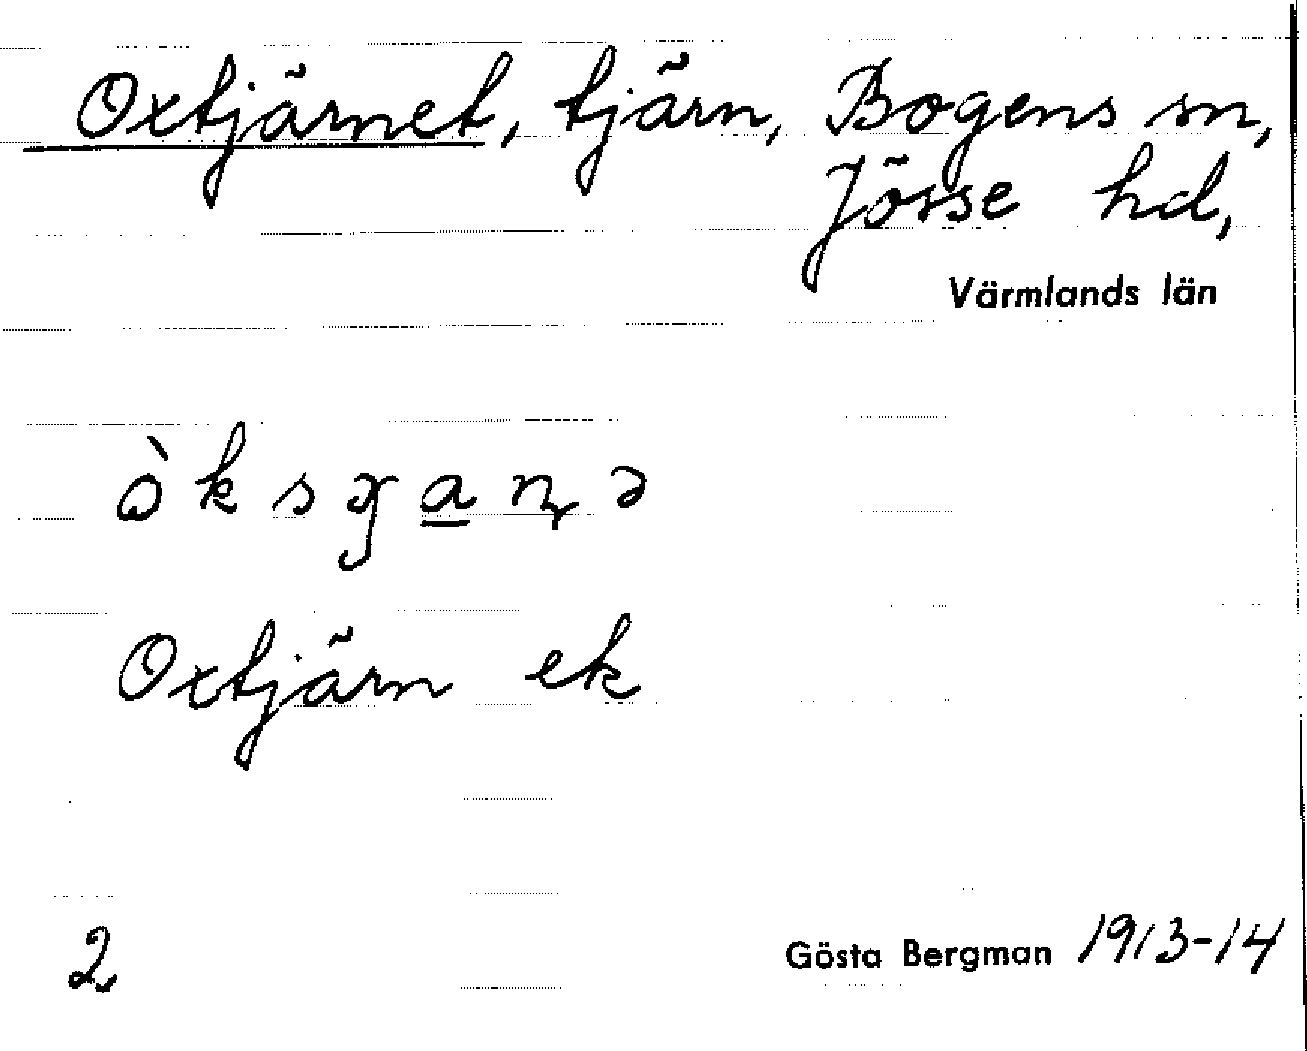 Oxtjärnet, tjärn, Bogens sn,
Jösse hd,
Värmlands län
Oxtjärn ek
2
Gösta Bergman 1913-14